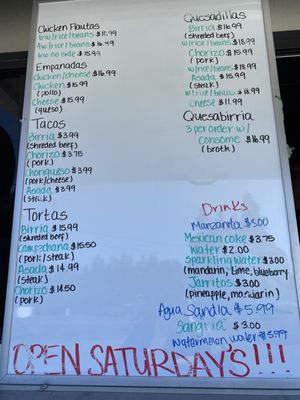 Chicken Flautas
6w/rice/beans $17.99
4w/rice/beans $16.49
6w no side $15.99
Empanadas
Chicken/cheese $16.99
Chicken $15.99
(pollo)
Cheese $15.99
(queso)
Tacos
Birria $3.99
(shredded beef)
Chorizo $3.75
(pork)
Choriqueso $3.99
(pork/cheese)
Asada $3.99
(steak)
Tortas
Birria $15.99
(shredded beef)
Campechana $15.50
(pork/steak)
Asada $14.99
(steak)
Chorizo $14.50
(pork)
Quesadillas
Birria $16.99
(shredded beef)
w/rice/beans $18.99
Chorizo $15.99
(pork)
w/rice/beans $18.99
Asada $15.99
(steak)
w/rice/beans $18.99
Cheese $11.99
Quesabirria
3 per order w/
consome $16.99
(broth)
Drinks
Manzanita $3.00
Mexican coke $3.75
Water $2.00
Sparkling water $3.00
(mandarin, lime, blueberry
Jarritos $3.00
(pineapple, mandarin)
Agua Sandia $5.99
Sangria $3.00
watermelon water $5.99
OPEN SATURDAY'S!!!